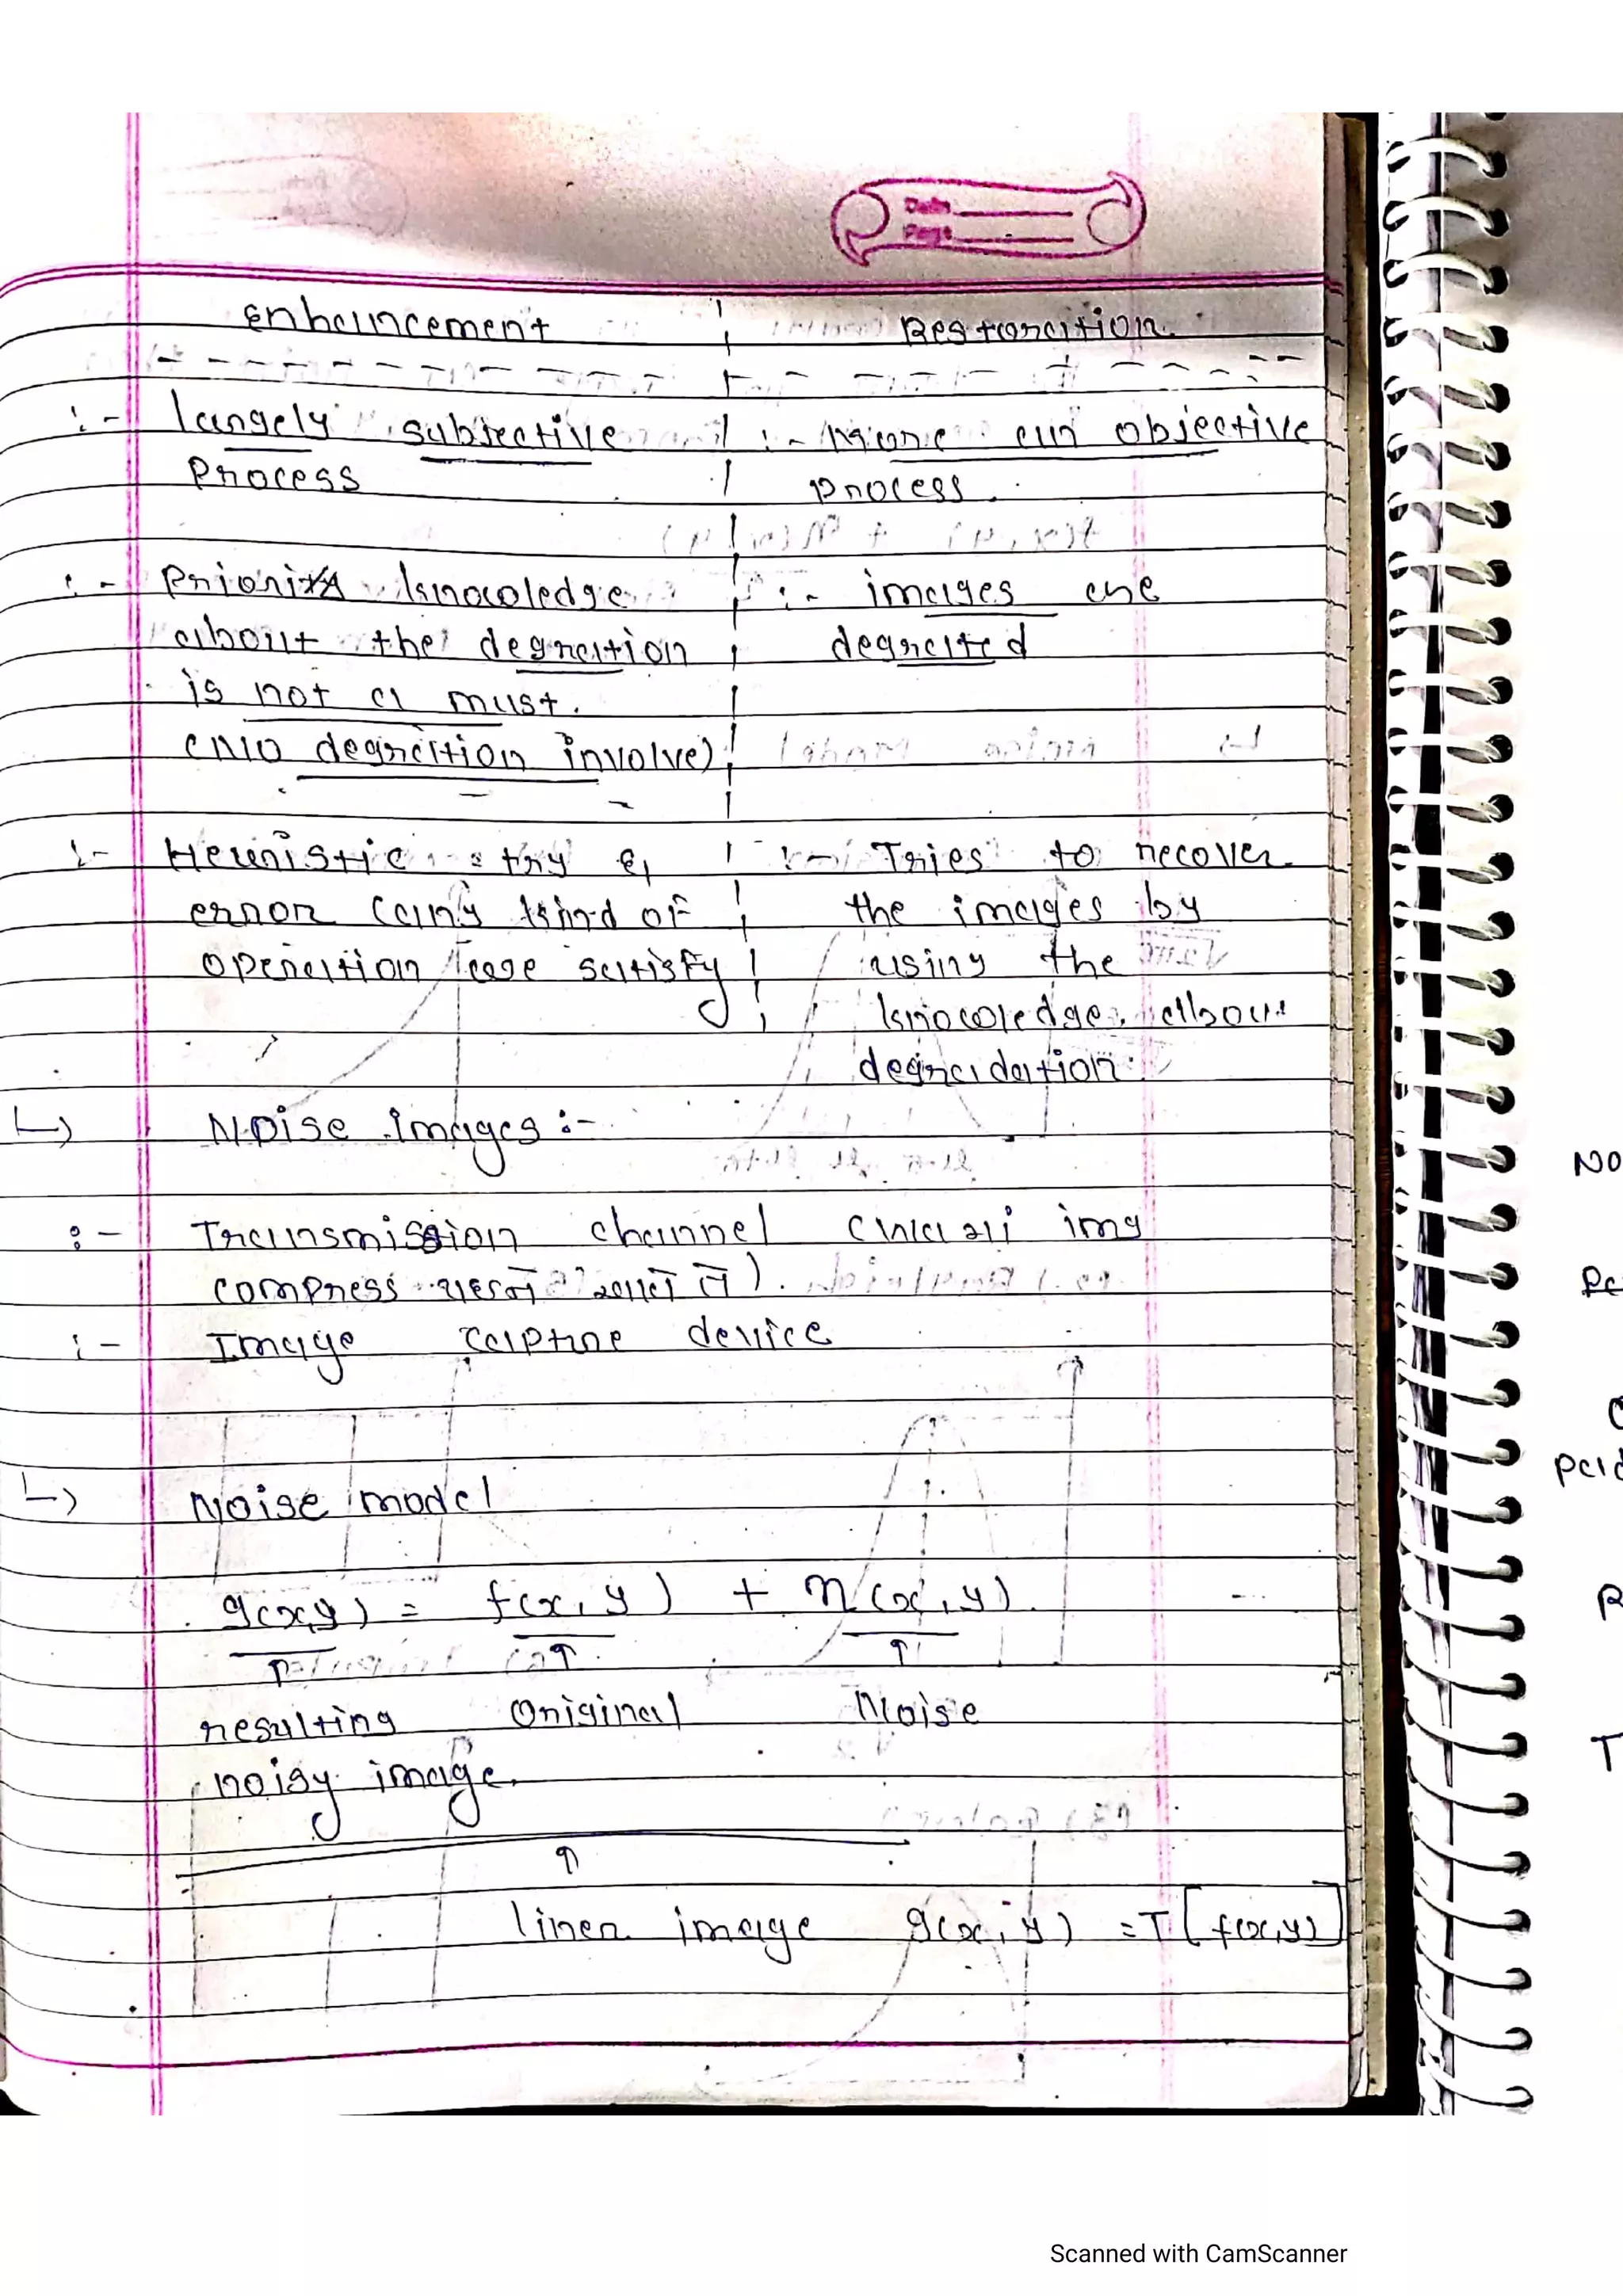 Date
Page
Enhancement Restoration
:- largely subjective :- more an objective
Process process.
:- Priority knowledge :- images are
about the degration degrated
is not a must.
(NO degration involve)
:- Heuristic :try & :- Tries to recover
error (any kind of the images by
operation satisfy using the
knowledge about
degradation.
↳ Noise images :-
:- Transmission channel img
compress
:- Image capture device
↳ Noise model
g(x,y) = f(x,y) + n(x,y)
↑ ↑ ↑
resulting Original Noise
noisy image.
↑
liner image g(x,y) = T[f(x,y)]
NO
T
Scanned with CamScanner